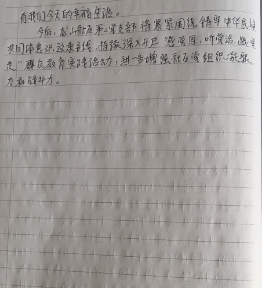 有我们今天的幸福生活。
今后,第二党支部将紧紧围绕铸牢中华民族
共同体意识这条主线,持续深入开展"感党恩、听党话、跟党
走"群众教育实践活动,进一步增强党组织凝聚
力和战斗力。